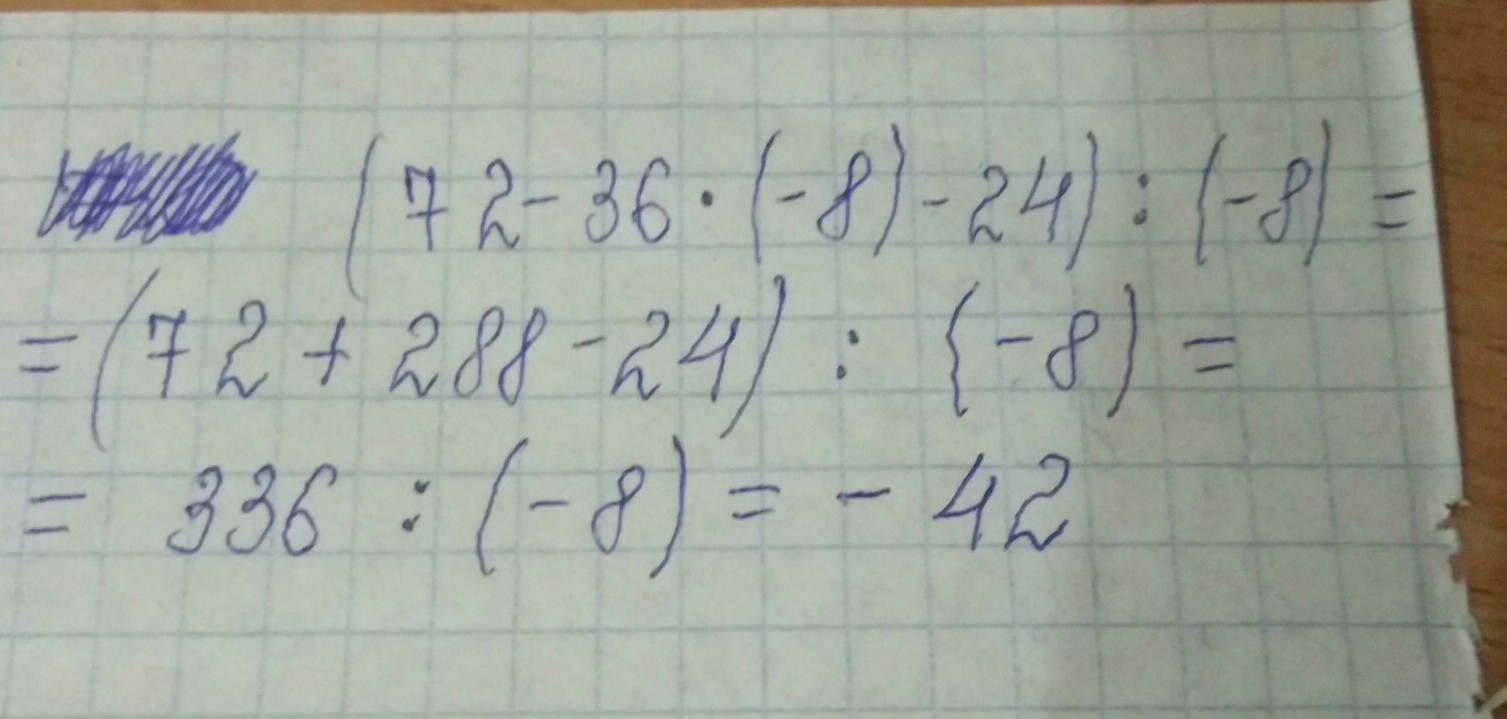 (72-36·(-8)-24):(-8)=
=(72+288-24):(-8)=
= 336 :(-8)=-42